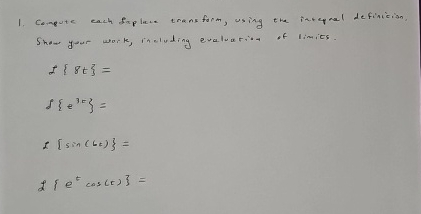 1. Compute each Laplace transform, using the integral definition.
Show your work, including evaluation of limits.
ℒ{8t} =
ℒ{e^{3t}} =
ℒ{sin(6t)} =
ℒ{e^t cos(t)} =